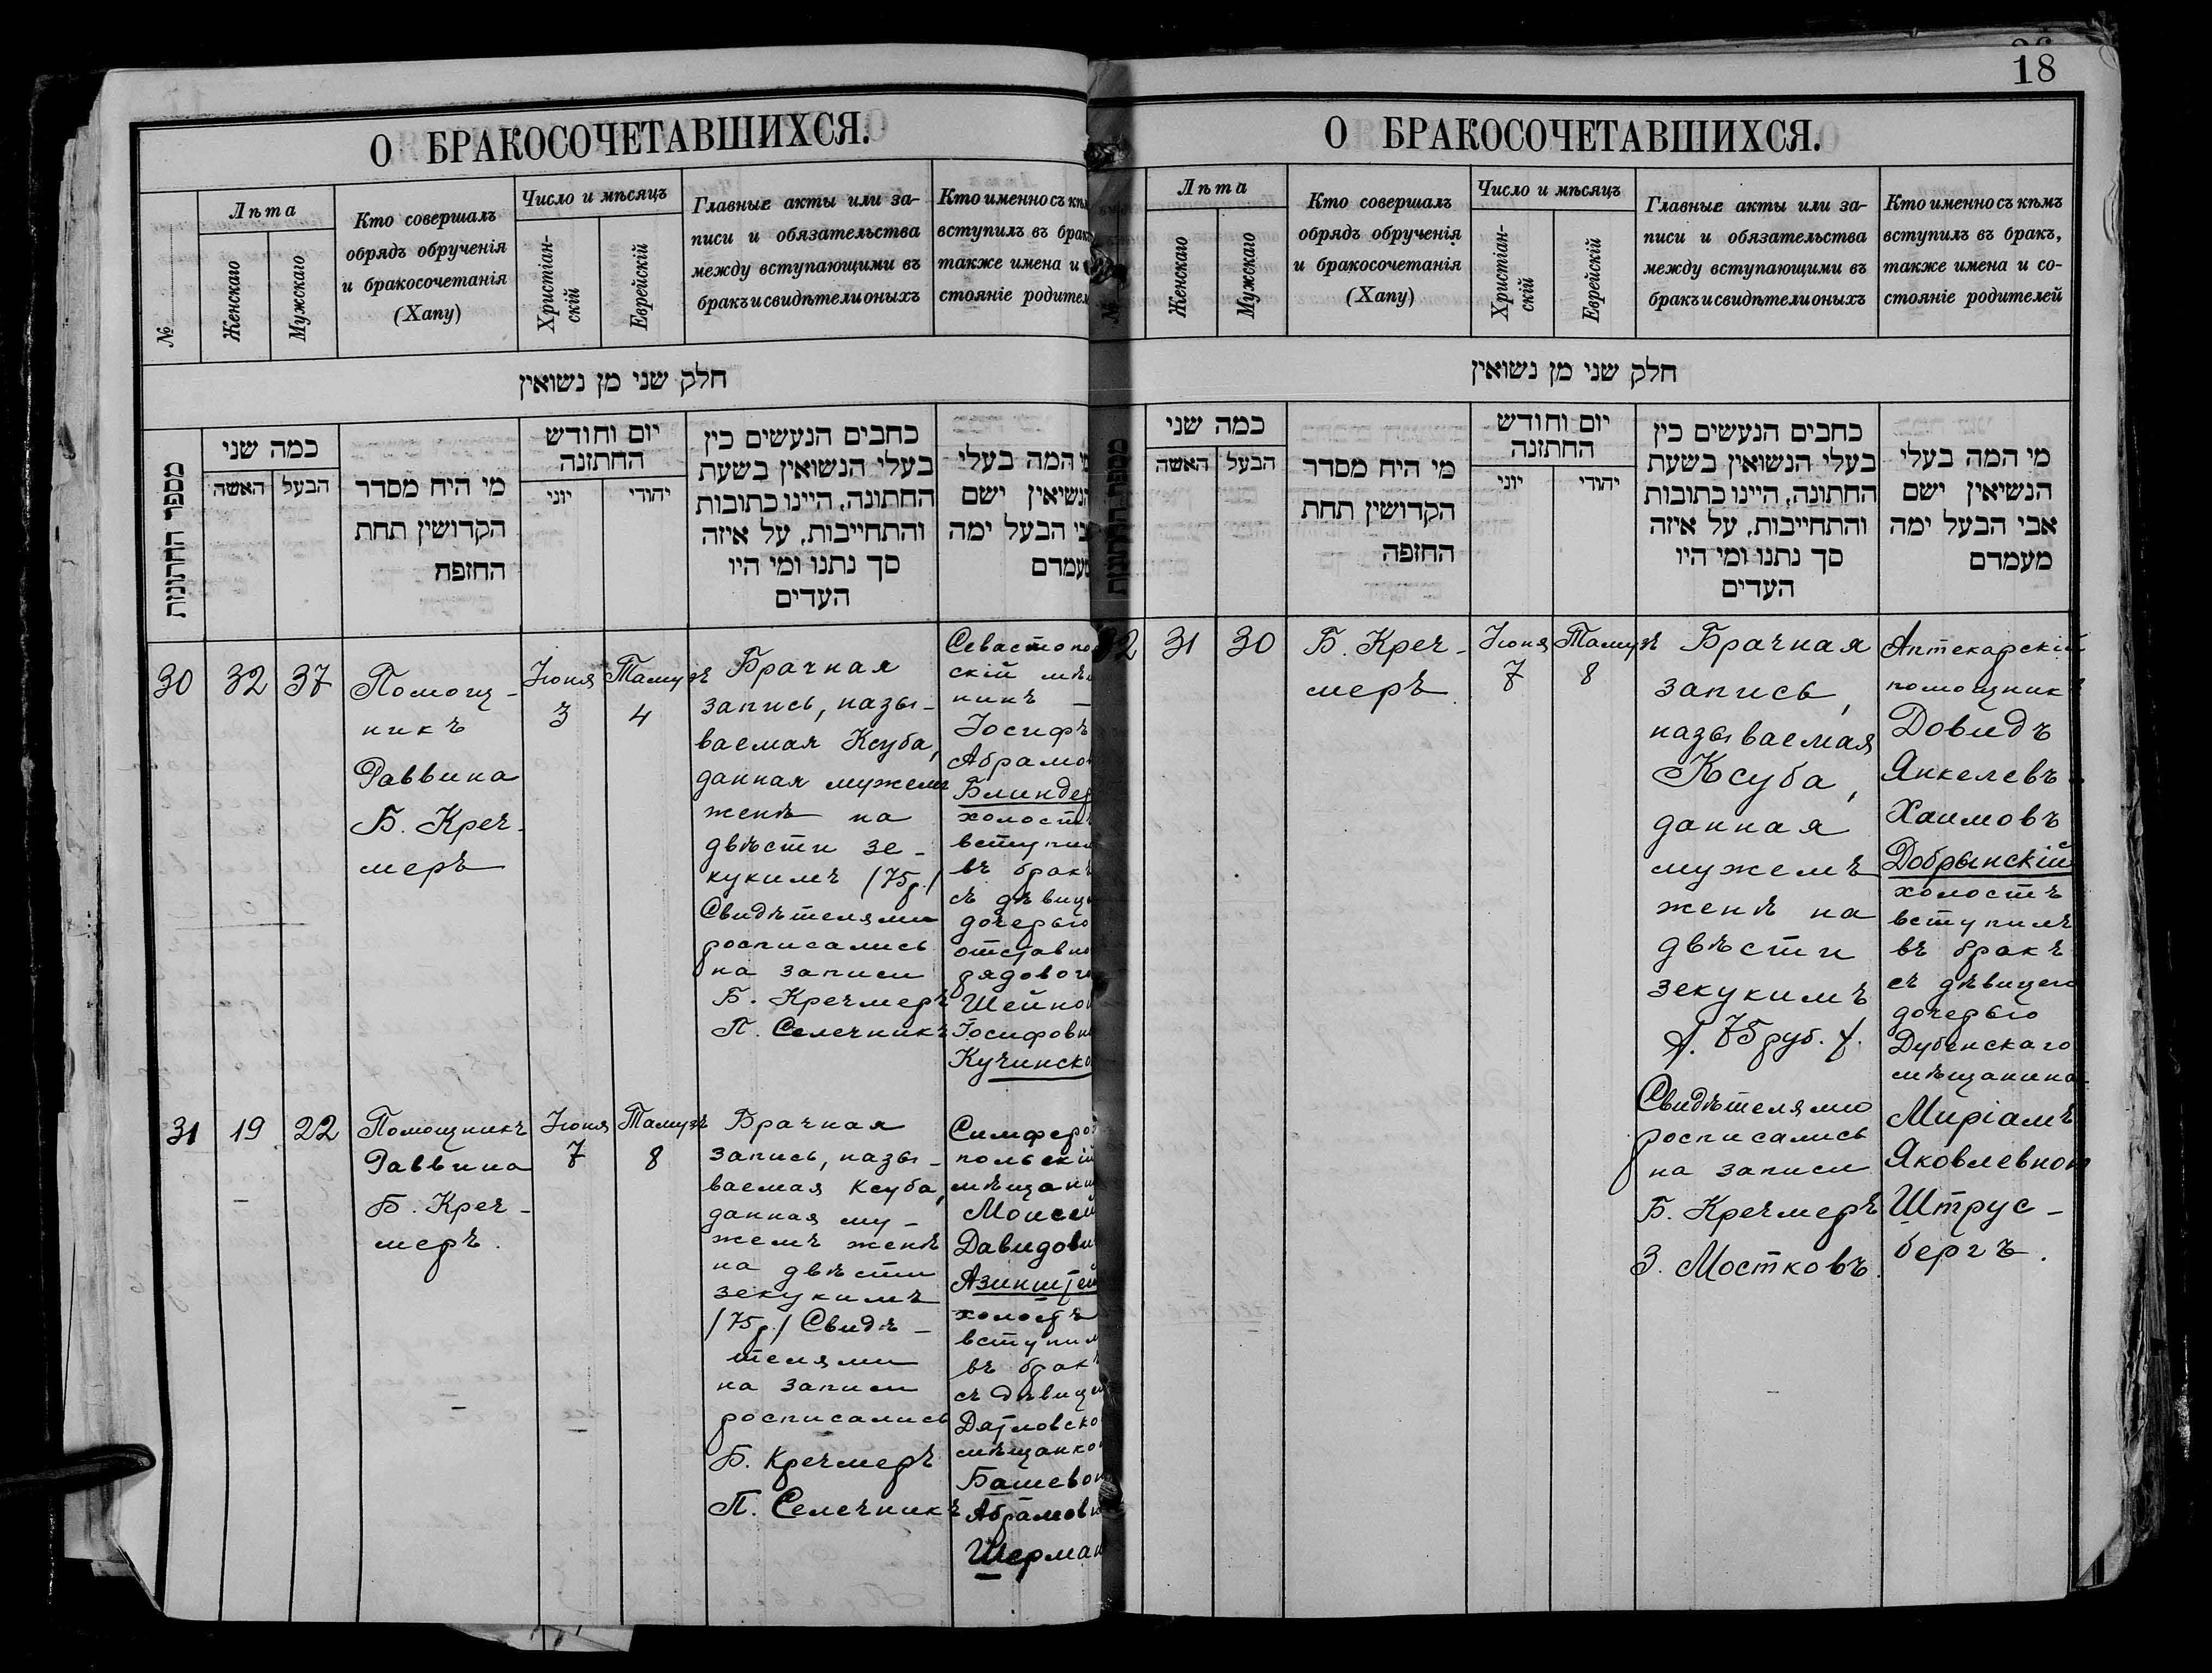 18
О БРАКОСОЧЕТАВШИХСЯ.
№
Лѣта
Женскаго
Мужскаго
Кто совершалъ
обрядъ обрученія
и бракосочетанія
(Хапу)
Число и мѣсяцъ
Христіан-
скій
Еврейскій
Главные акты или за-
писи и обязательства
между вступающими въ
бракъ и свидѣтели оныхъ
Кто именно съ кѣм
вступилъ въ брак
также имена и
стояніе родител
חלק שני מן נשואין
מספר החתונות
כמה שני
האשה
הבעל
מי היח מסדר
הקדושין תחת
החופה
יום וחודש
החתונה
יוני
יהודי
כחבים הנעשים כין
בעלי הנשואין בשעת
החתונה, היינו כתובות
והתחייבות, על איזה
סך נתנו ומי היו
העדים
המה בעלי
הנשיאין ישם
הבעל ימה
מעמדם
30
32
37
Помощ-
никъ
Раввина
Б. Креч-
меръ
Іюня
3
Тамузъ
4
Брачная
запись, назы-
ваемая Ксуба,
данная мужемъ
женѣ на
двѣсти зе-
кукимъ /75р./
Свидѣтелями
росписались
на записи
Б. Кречмеръ
П. Селечникъ
Севастопо
скій мѣ
нинъ
Іосифъ
Абрамо
Блиндер
холостъ
вступил
въ бракъ
съ дѣвице
дочерью
отставно
рядового
Шейно
Іосифовн
Кучинско
31
19
22
Помощникъ
Раввина
Б. Креч-
меръ.
Іюня
7
Тамузъ
8
Брачная
запись, назы-
ваемая Ксуба,
данная му-
жемъ женѣ
на двѣсти
зекукимъ
/75р./ Свидѣ-
телями
на записи
росписались
Б. Кречмеръ
П. Селечникъ
Симферо
польскій
мѣщанин
Моисей
Давидови
Азинштей
холостъ
вступил
въ бракъ
съ дѣвице
Дятловско
мѣщанко
Башевой
Абрамовн
Шерман
О БРАКОСОЧЕТАВШИХСЯ.
№
Лѣта
Женскаго
Мужскаго
Кто совершалъ
обрядъ обрученія
и бракосочетанія
(Хапу)
Число и мѣсяцъ
Христіан-
скій
Еврейскій
Главные акты или за-
писи и обязательства
между вступающими въ
бракъ и свидѣтели оныхъ
Кто именно съ кѣмъ
вступилъ въ бракъ,
также имена и со-
стояніе родителей
חלק שני מן נשואין
מספר החתונות
כמה שני
האשה
הבעל
מי היח מסדר
הקדושין תחת
החופה
יום וחודש
החתונה
יוני
יהודי
כחבים הנעשים כין
בעלי הנשואין בשעת
החתונה, היינו כתובות
והתחייבות, על איזה
סך נתנו ומי היו
העדים
מי המה בעלי
הנשיאין ישם
אבי הבעל ימה
מעמדם
32
31
30
Б. Креч-
меръ
Іюня
7
Тамузъ
8
Брачная
запись,
называемая
Ксуба,
данная
мужемъ
женѣ на
двѣсти
зекукимъ
/. 75 руб. /.
Свидѣтелями
росписались
на записи
Б. Кречмеръ
З. Мостковъ.
Аптекарскій
помощникъ
Довидъ
Янкелевъ-
Хаимовъ
Добрынскій
холостъ
вступилъ
въ бракъ
съ дѣвицею
дочерью
Дубенскаго
мѣщанина
Миріамъ
Яковлевной
Штрус-
бергъ.